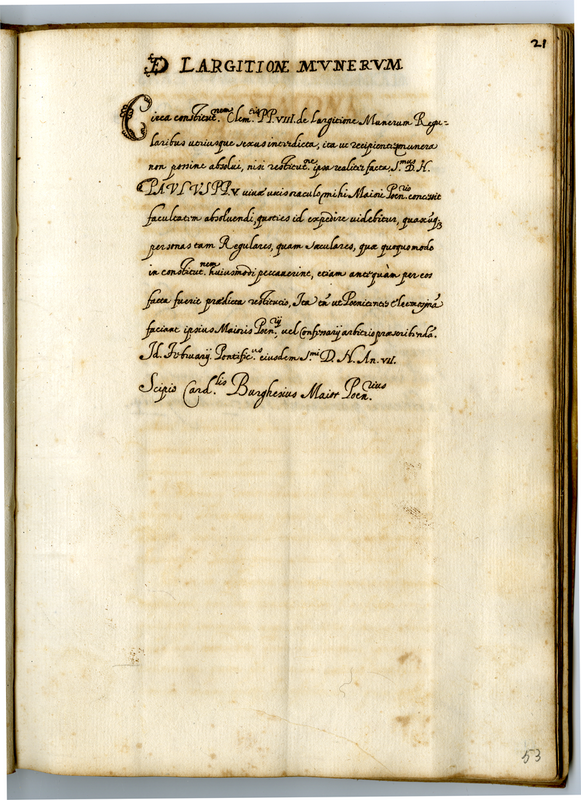 21
DE LARGITIONE MVNERVM
Circa constitut.nem Clem.tis PP. VIII. de largitione Munerum Regu-
laribus utriusque sexus interdicta, ita ut recipientes munera
non possint absolui, nisi restitut.ne ipsa realiter facta, S.mus D. N.
PAVLVS PP. V. uiuæ uocis oraculo mihi Maiori Poen.rio concessit
facultatem absoluendi, quoties id expedire uidebitur, quascũq3
personas tam Regulares, quam sæculares, quæ quoquomodo
in constitut.nem huiusmodi peccauerint, etiam antequàm per eos
facta fuerit prædicta restitutio, Ita tñ ut Poenitentes eleemosynã
faciant ipsius Maioris Poen.rij, uel Confessarij arbitrio præscribendã.
Id. Februarij. Pontific.tus eiusdem S.mi D. N. An. VII.
Scipio Card.lis Burghesius Maior Poen.rius
53